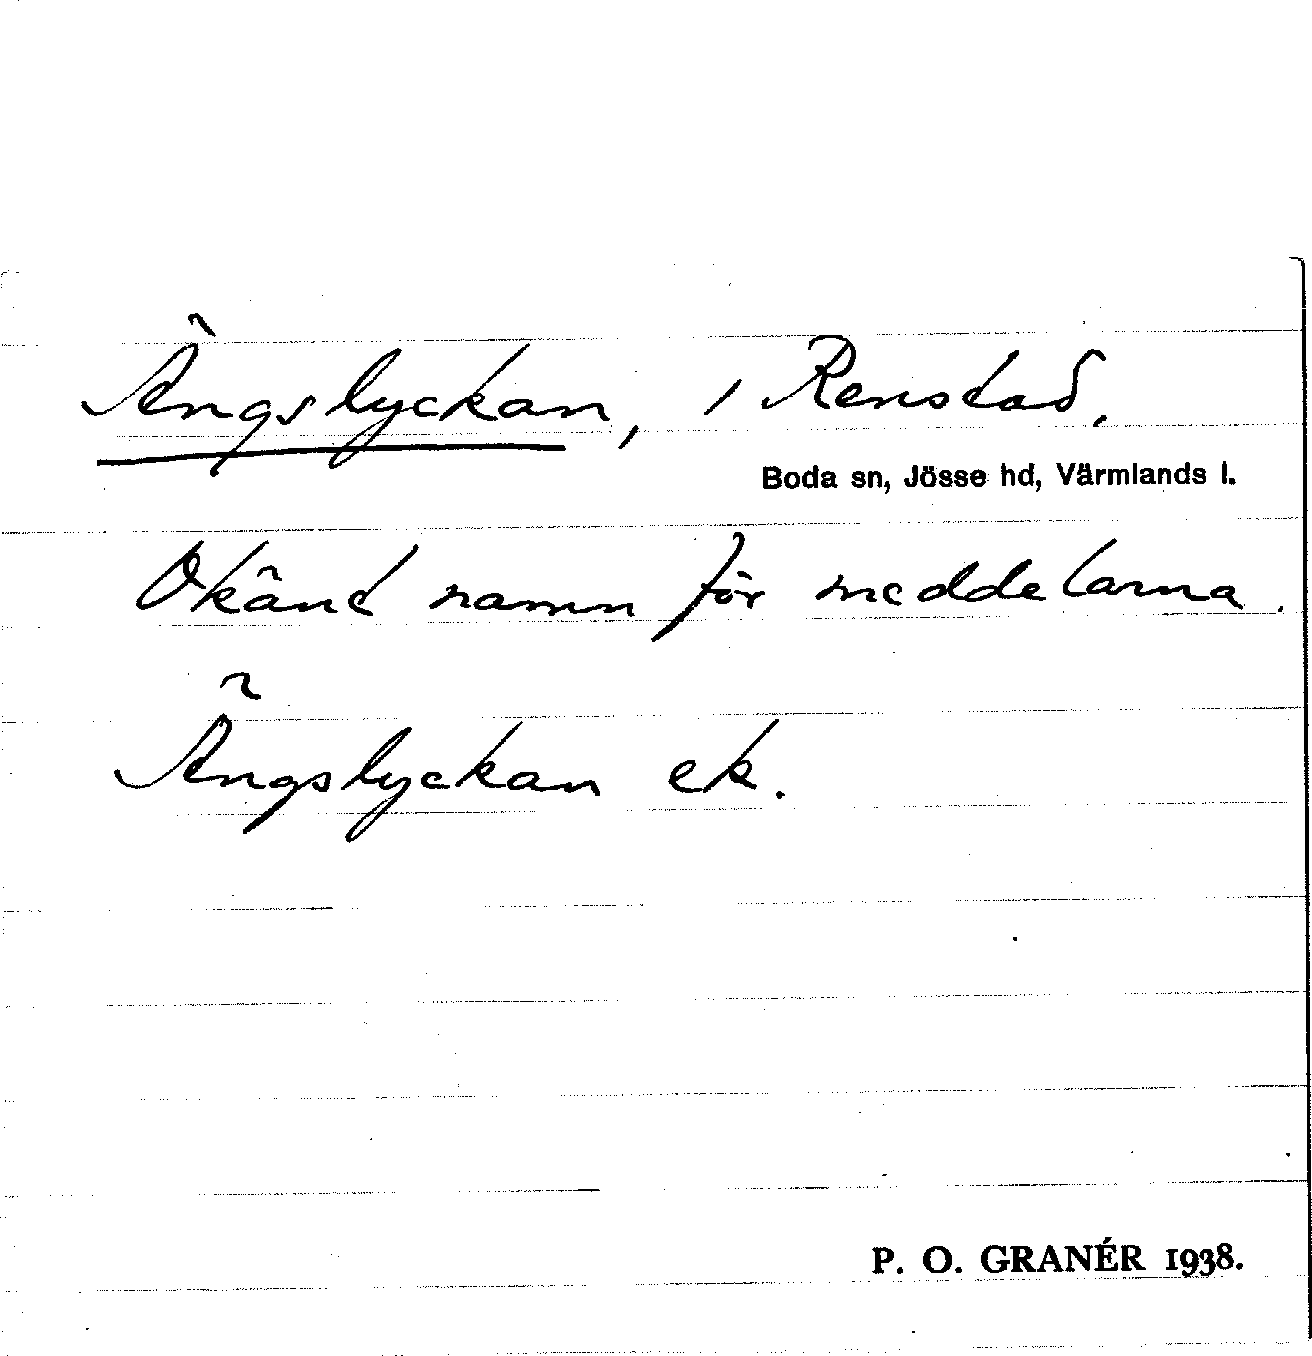 Ängslyckan, i Renstad.
Boda sn, Jösse hd, Värmlands l.
Okänt namn för meddelarna.
Ängslyckan ek.
P. O. GRANÉR 1938.